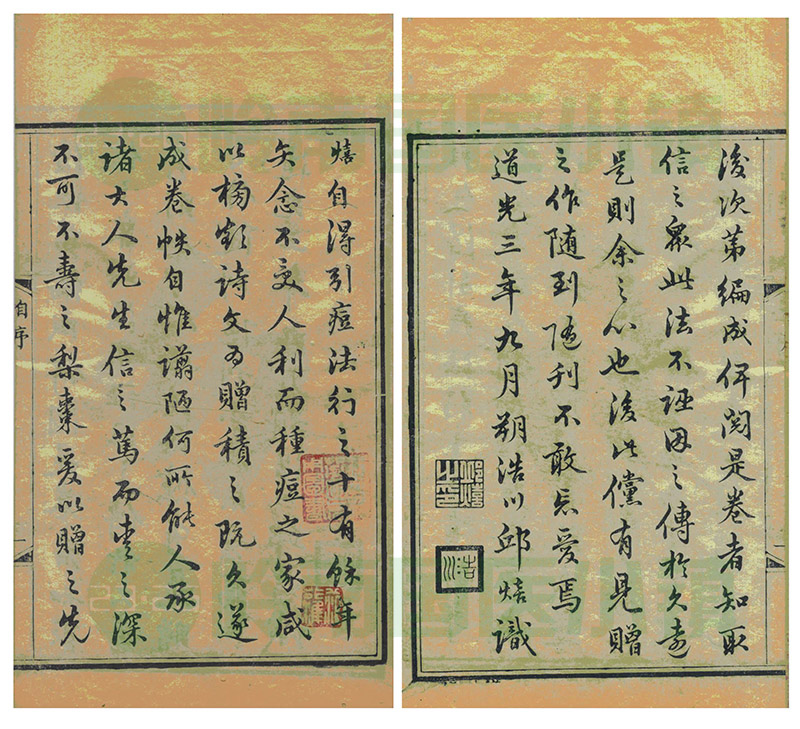 熺自得引痘法行之十有餘年
矢念不受人利而種痘之家咸
以額詩文為贈積之既久遂
成卷帙自惟譾陋何所能人承
諸大人先生信之篤而愛之深
不可不壽之梨棗爰以贈之先
自序
後次第編成俾閱是卷者知取
信之眾此法不誣因之傳於久遠
是則余之心也後此儻有見贈
之作隨到隨刊不敢忘愛焉
道光三年九月朔浩川邱熺識
邱熺之印
浩川